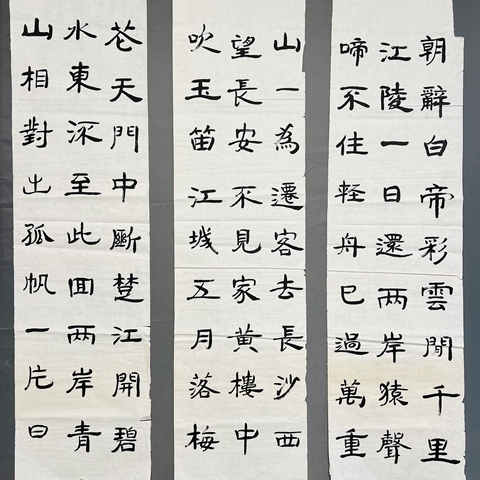 朝辭白帝彩雲閒千里
江陵一日還两岸猿聲
啼不住輕舟已過萬重
山一為遷客去長沙西
望長安不見家黄樓中
吹玉笛江城五月落梅
花天門中斷楚江開碧
水東流至此回两岸青
山相對出孤帆一片日